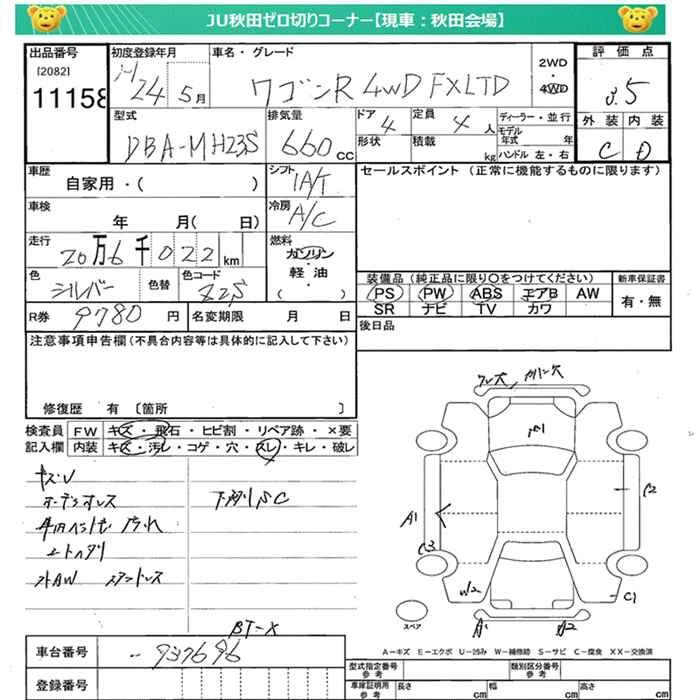 JU秋田ゼロ切りコーナー【現車：秋田会場】
出品番号 初度登録年月 車名・グレード 評価点
[2082]
11158 24年5月 ワゴンR 4WD FXLTD 2WD・4WD 3.5
型式 排気量 ドア 定員 ディーラー・並行 外装 内装
DBA-MH23S 660cc 4 4人 モデル年式 年
形状 積載 kg ハンドル 左・右 C D
車歴 シフト セールスポイント (正常に機能するものに限ります)
自家用・( ) IA/T
車検 冷房
年 月( 日) A/C
走行 燃料
20万6千022km ガソリン・軽油・( )
色 色替 色コード 装備品 (純正品に限り〇をつけてください) 新車保証書
シルバー Z2S PS PW ABS エアB AW 有・無
SR ナビ TV カワ
R券 9780円 名変期限 月 日 後日品
注意事項申告欄 (不具合内容等は具体的に記入して下さい)
修復歴 有 〔箇所 〕
検査員 FW キズ・飛石・ヒビ割・リペア跡・×要
記入欄 内装 キズ・汚レ・コゲ・穴・スレ・キレ・破レ
キズU
オーデジオレス 下廻りSC
エートヘタリ
BT-X
A1 C3 W2 C2 C1 A1 A2
スペア
A－キズ E－エクボ U－凹み W－補修跡 S－サビ C－腐食 XX－交換済
車台番号 -937696
登録番号
型式指定番号 類別区分番号
車庫証明用参考 長さ cm 幅 cm 高さ cm